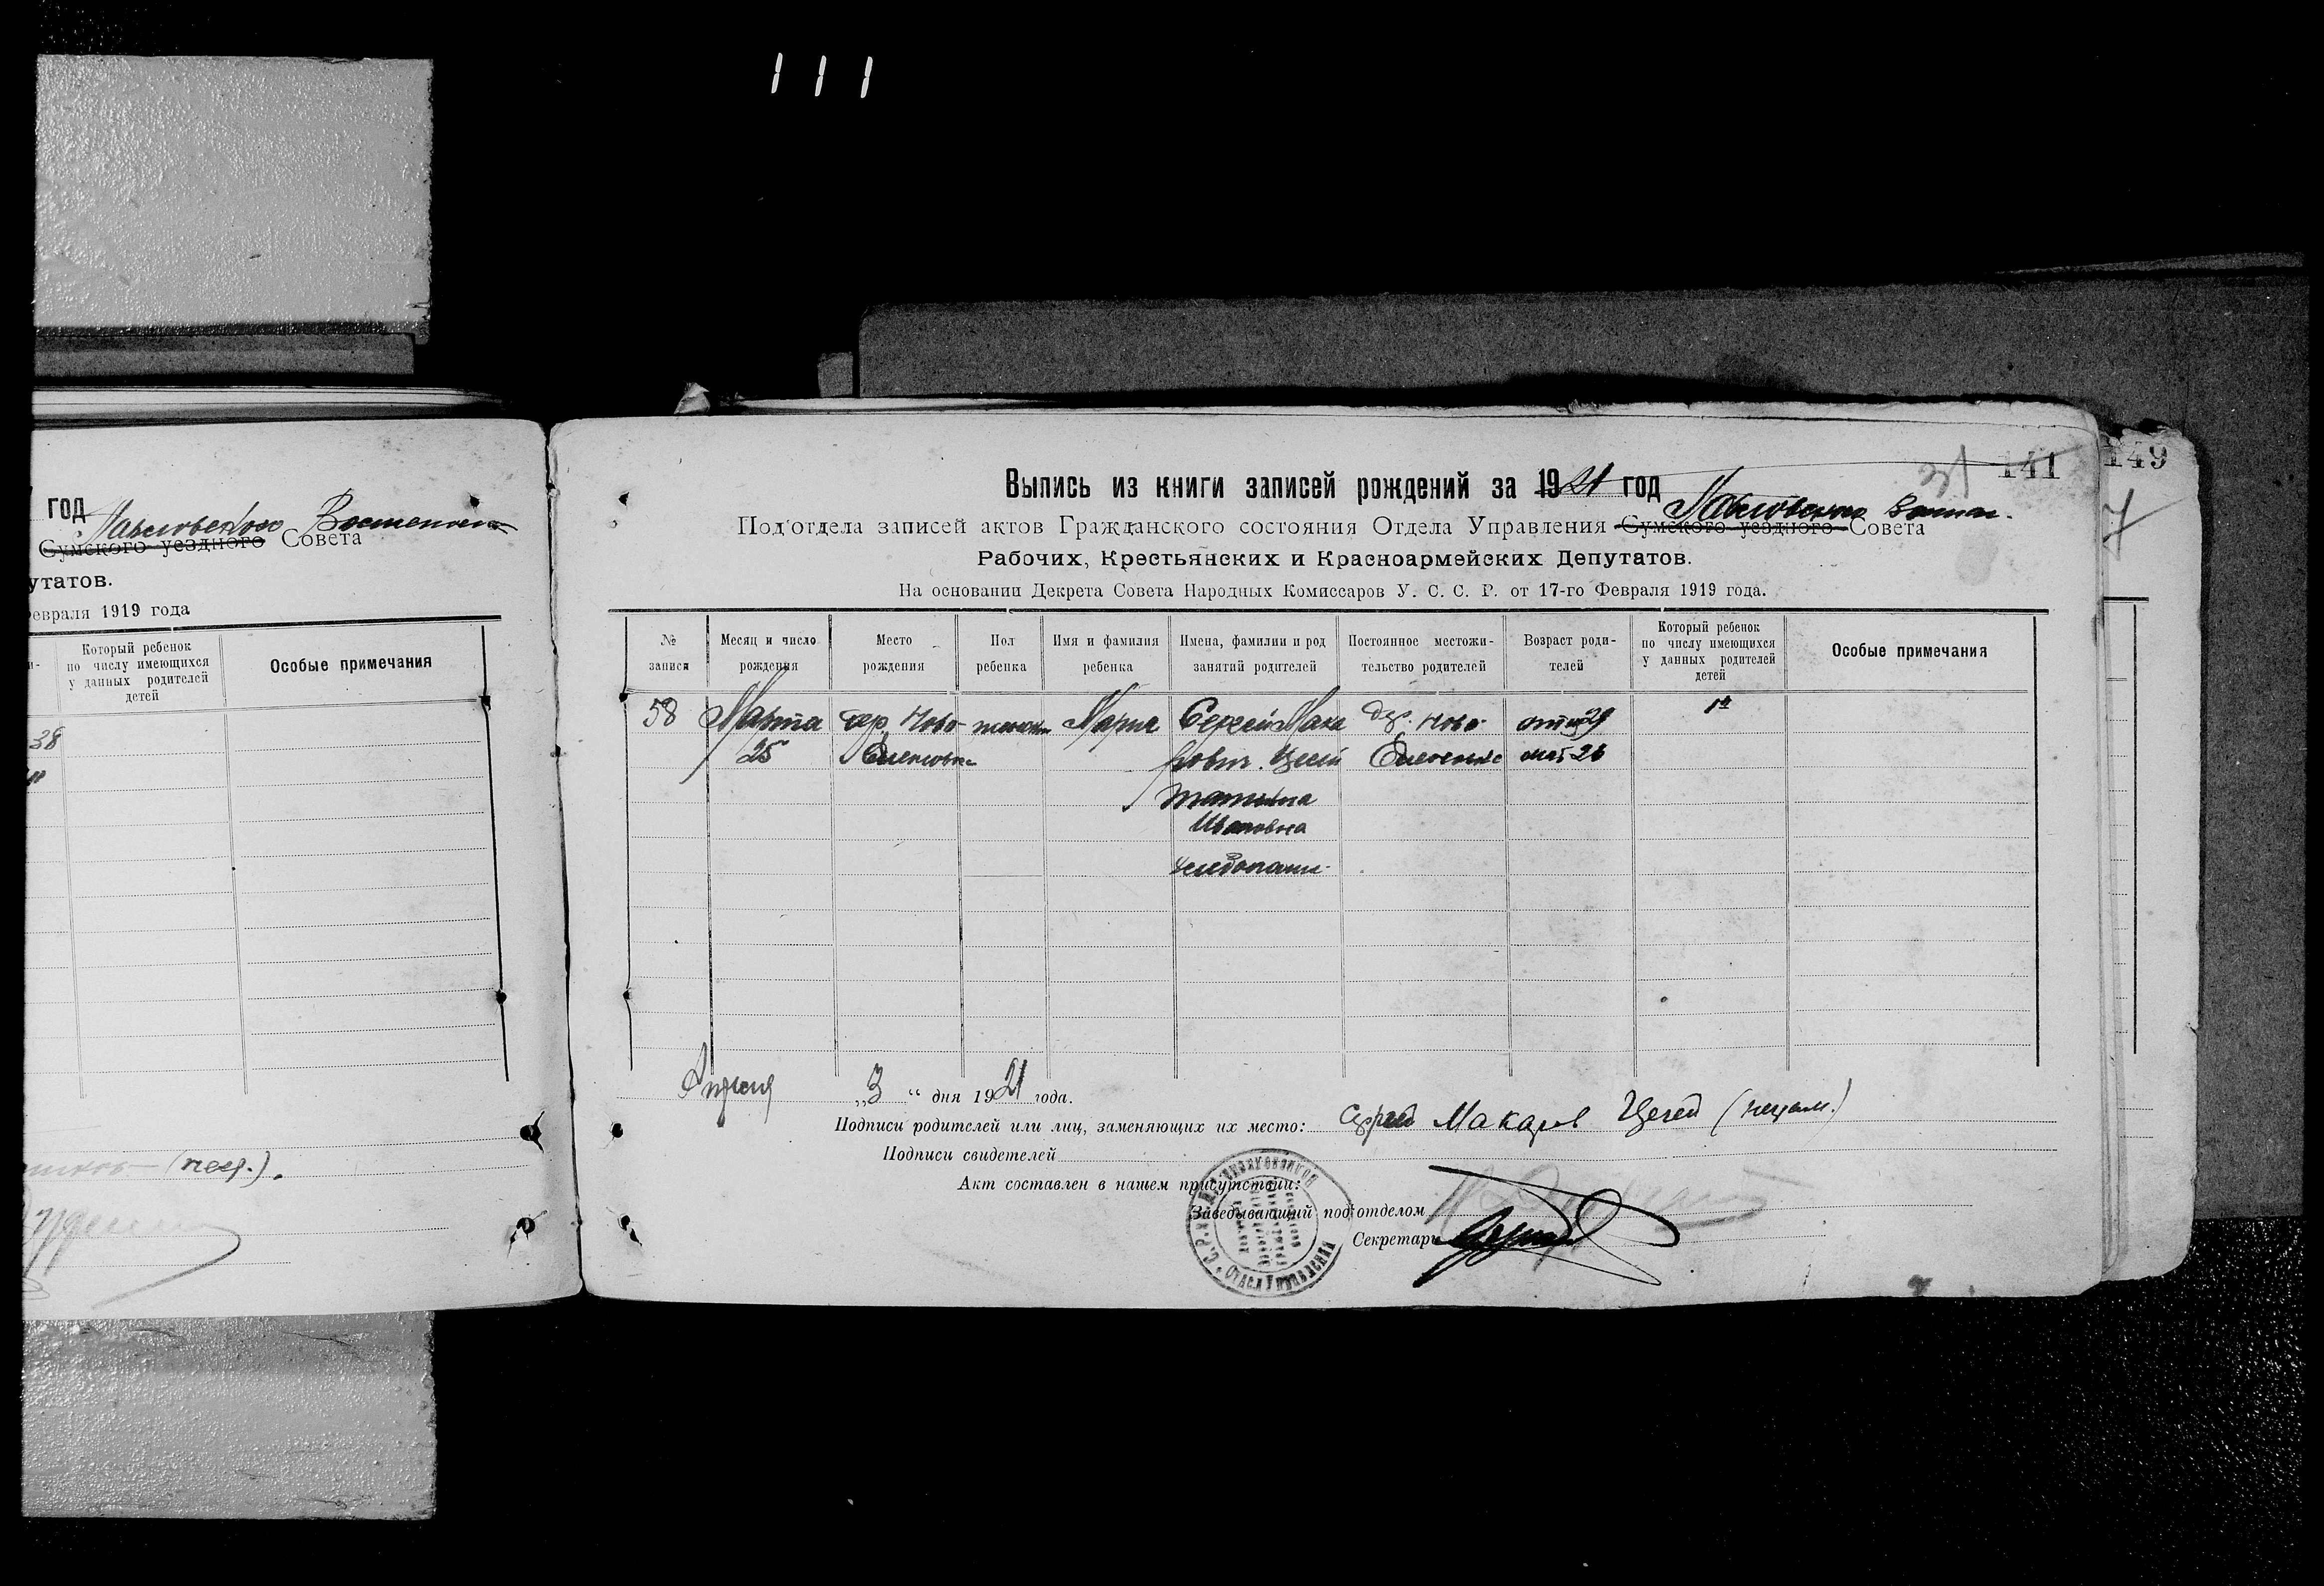 111
год
Сумского уездного Совета
утатов.
евраля 1919 года
Который ребенок по числу имеющихся у данных родителей детей
Особые примечания
38
(негр.).
141
149
31
7
Выпись из книги записей рождений за 1921 год
Павловского Волисп.
Под'отдела записей актов Гражданского состояния Отдела Управления Сумского уездного Совета
Рабочих, Крестьянских и Красноармейских Депутатов.
На основании Декрета Совета Народных Комиссаров У. С. С. Р. от 17-го Февраля 1919 года.
№ записи
Месяц и число рождения
Место рождения
Пол ребенка
Имя и фамилия ребенка
Имена, фамилии и род занятий родителей
Постоянное местожительство родителей
Возраст родителей
Который ребенок по числу имеющихся у данных родителей детей
Особые примечания
58 Марта дер. Ново- Мария Сергей Мака дер. Ново- отцу 29 1й
25 Еленовка мат. 26
Татьяна
Ивановна
Апреля „3“ дня 1921 года.
Подписи родителей или лиц, заменяющих их место: Сергей Макаров (неграм.)
Подписи свидетелей
Акт составлен в нашем присутствии:
Заведывающий под'отделом
Секретарь
Отдел Управления